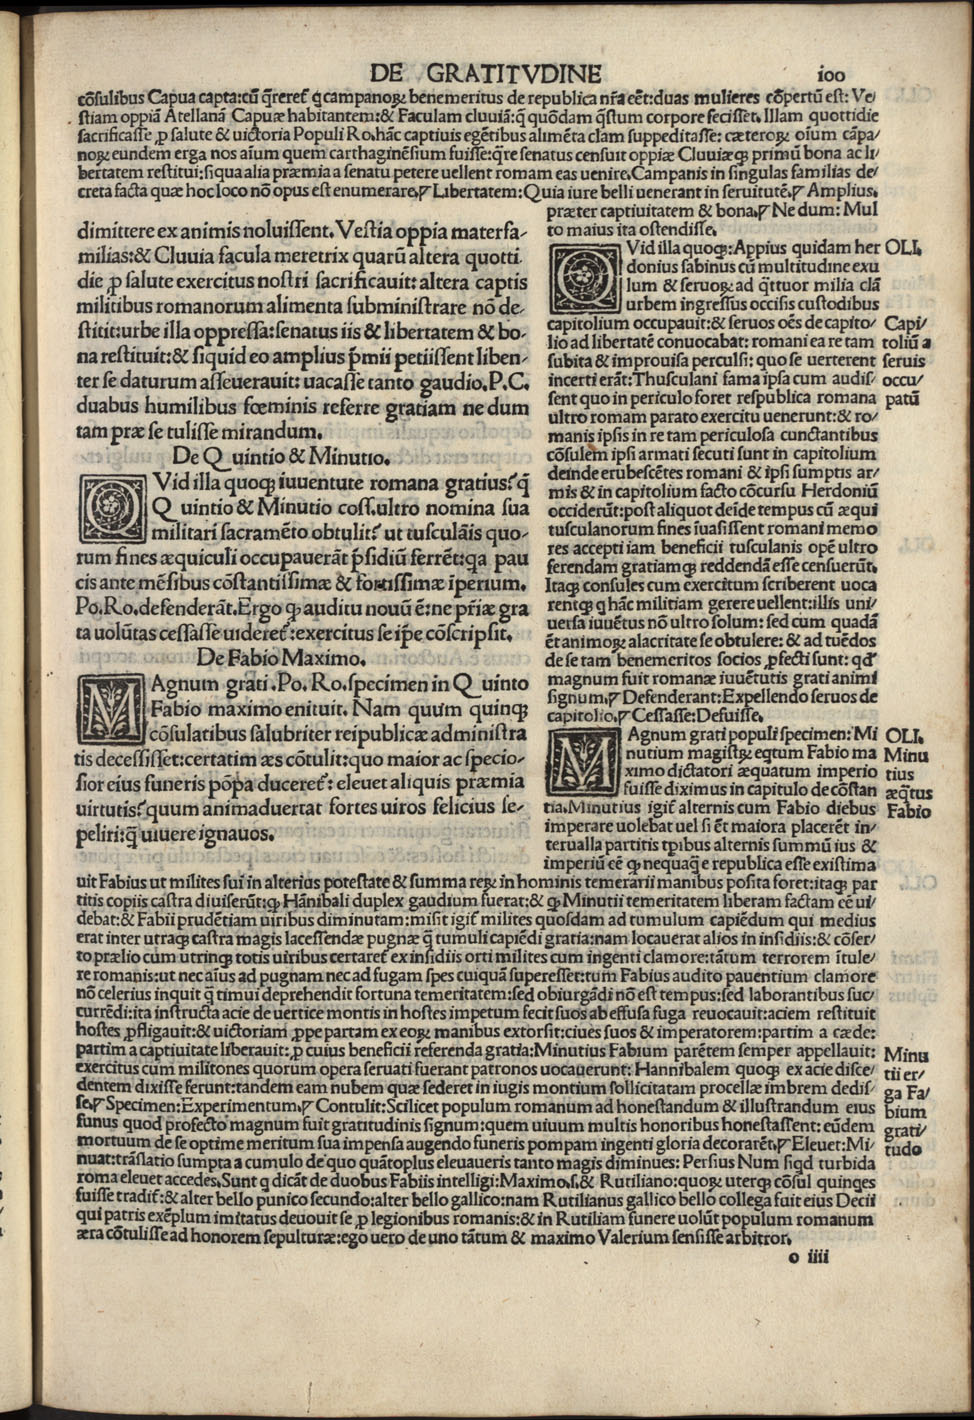 DE GRATITVDINE
100
cōſulibus Capua capta:cū q̄reret᷑ q̄ campanoꝝ benemeritus de republica nr̄a cēt:duas mulieres cōpertū eſt: Ve/
ſtiam oppiā Atellanā Capuæ habitantem:& Faculam cluuiā:q̄ quōdam q̄ſtum corpore feciſſet. Illam quottidie
ſacrificaſſe ꝓ ſalute & uictoria Populi Ro.hāc captiuis egētibus alimēta clam ſuppeditaſſe: cæteroꝝ oīum cāpa/
noꝝ eundem erga nos aīum quem carthaginēſium fuiſſe:q̄re ſenatus cenſuit oppiæ Cluuiæqꝫ primū bona ac li/
bertatem reſtitui:ſiqua alia præmia a ſenatu petere uellent romam eas uenire.Campanis in ſingulas familias de/
creta facta quæ hoc loco nō opus eſt enumerare.¶Libertatem:Quia iure belli uenerant in ſeruitutē.¶Amplius.
præter captiuitatem & bona.¶Ne dum: Mul
to maius ita oſtendiſſe.
dimittere ex animis noluiſſent. Veſtia oppia materfa-
milias:& Cluuia facula meretrix quarū altera quotti.
die ꝓ ſalute exercitus noſtri ſacrificauit: altera captis
militibus romanorum alimenta ſubminiſtrare nō de-
ſtitit:urbe illa oppreſſa:ſenatus iis & libertatem & bo-
na reſtituit:& ſiquid eo amplius p̄mii petiiſſent liben-
ter ſe daturum aſſeuerauit: uacaſſe tanto gaudio.P.C.
duabus humilibus fœminis referre gratiam ne dum
tam præ ſe tuliſſe mirandum.
De Quintio & Minutio.
QVid illa quoqꝫ iuuentute romana gratius? q̄
Quintio & Minutio coſſ.ultro nomina ſua
militari ſacramēto obtulit? ut tuſculāis quo-
rum fines æquiculi occupauerāt p̄ſidiū ferrēt:qa pau
cis ante mēſibus cōſtantiſſimæ & fortiſſimæ īperium.
Po.Ro.defenderāt.Ergo qꝫ auditu nouū ē:ne pr̄iæ gra
ta uolūtas ceſſaſſe uideret᷑:exercitus ſe ip̄e cōſcripſit.
De Fabio Maximo.
MAgnum grati.Po.Ro.ſpecimen in Quinto
Fabio maximo enituit. Nam quum quinqꝫ
cōſulatibus ſalubriter reipublicæ adminiſtra
tis deceſſiſſet:certatim æs cōtulit:quo maior ac ſpecio-
ſior eius funeris pōpa duceret᷑: eleuet aliquis præmia
uirtutis? quum animaduertat fortes uiros felicius ſe-
peliri:q̄ uiuere ignauos.
QVid illa quoqꝫ:Appius quidam her
donius ſabinus cū multitudine exu
lum & ſeruoꝝ ad q̄ttuor milia clā
urbem ingreſſus occiſis cuſtodibus
capitolium occupauit:& ſeruos oēs de capito/
lio ad libertatē conuocabat: romani ea re tam
ſubita & improuiſa perculſi: quo ſe uerterent
incerti erāt:Thuſculani fama ipſa cum audiſ/
ſent quo in periculo foret reſpublica romana
ultro romam parato exercitu uenerunt:& ro/
manis ipſis in re tam periculoſa cunctantibus
cōſulem ipſi armati ſecuti ſunt in capitolium
deinde erubeſcētes romani & ipſi ſumptis ar/
mis & in capitolium facto cōcurſu Herdoniū
occiderūt:poſt aliquot deīde tempus cū æqui
tuſculanorum fines īuaſiſſent romani memo
res accepti iam beneficii tuſculanis opē ultro
ferendam gratiamqꝫ reddendā eſſe cenſuerūt.
Itaqꝫ conſules cum exercitum ſcriberent uoca
rentqꝫ q hāc militiam gerere uellent:illis uni/
uerſa iuuētus nō ultro ſolum: ſed cum quadā
ēt animoꝝ alacritate ſe obtulere: & ad tuēdos
de ſe tam benemeritos ſocios ꝓfecti ſunt: qd̄
magnum fuit romanæ iuuētutis grati animi
ſignum.¶Defenderant:Expellendo ſeruos de
capitolio.¶Ceſſaſſe:Defuiſſe.
MAgnum grati populi ſpecimen: Mi
nutium magiſtꝝ eq̄tum Fabio ma
ximo dictatori æquatum imperio
fuiſſe diximus in capitulo de cōſtan
tia.Minutius igit᷑ alternis cum Fabio diebus
imperare uolebat uel ſi ēt maiora placerēt in/
terualla partitis tꝑibus alternis ſummū ius &
imperiū cē qꝫ nequaq̄ e republica eſſe exiſtima
OLI.
Capi/
toliū a
ſeruis
occu/
patū
OLI.
Minu
tius
æq̄tus
Fabio
uit Fabius ut milites ſui in alterius poteſtate & ſumma reꝝ in hominis temerarii manibus poſita foret:itaqꝫ par
titis copiis caſtra diuiſerūt:qꝫ Hānibali duplex gaudium fuerat:& qꝫ Minutii temeritatem liberam factam cē ui/
debat:& Fabii prudētiam uiribus diminutam:miſit igit᷑ milites quoſdam ad tumulum capiēdum qui medius
erat inter utraqꝫ caſtra magis laceſſendæ pugnæ q̄ tumuli capiēdi gratia:nam locauerat alios in inſidiis:& cōſer/
to prælio cum utrinqꝫ totis uiribus certaret᷑ ex inſidiis orti milites cum ingenti clamore:tātum terrorem ītule/
re romanis:ut nec aīus ad pugnam nec ad fugam ſpes cuiquā ſupereſſet:tum Fabius audito pauentium clamore
nō celerius inquit q̄ timui deprehendit fortuna temeritatem:ſed obiurgādi nō eſt tempus:ſed laborantibus ſuc/
currēdi:ita inſtructa acie de uertice montis in hoſtes impetum fecit ſuos ab effuſa fuga reuocauit:aciem reſtituit
hoſtes ꝓfligauit:& uictoriam ꝓpe partam ex eoꝝ manibus extorſit:ciues ſuos & imperatorem:partim a cæde:
partim a captiuitate liberauit:ꝓ cuius beneficii referenda gratia:Minutius Fabium parētem ſemper appellauit:
exercitus cum militones quorum opera ſeruati fuerant patronos uocauerunt: Hannibalem quoqꝫ ex acie diſce/
dentem dixiſſe ferunt:tandem eam nubem quæ ſederet in iugis montium ſollicitatam procellæ imbrem dediſ/
ſe.¶Specimen:Experimentum.¶Contulit:Scilicet populum romanum ad honeſtandum & illuſtrandum eius
funus quod profecto magnum fuit gratitudinis ſignum:quem uiuum multis honoribus honeſtaſſent: eūdem
mortuum de ſe optime meritum ſua impenſa augendo funeris pompam ingenti gloria decorarēt.¶Eleuet:Mi/
nuat:trāſlatio ſumpta a cumulo de quo quātoplus eleuaueris tanto magis diminues: Perſius Num ſiqd turbida
roma eleuet accedes.Sunt q dicāt de duobus Fabiis intelligi:Maximo.ſ.& Rutiliano:quoꝝ uterqꝫ cōſul quinqes
fuiſſe tradit᷑:& alter bello punico ſecundo:alter bello gallico:nam Rutilianus gallico bello collega fuit eius Decii
qui patris exēplum imitatus deuouit ſe ꝓ legionibus romanis:& in Rutiliam funere uolūt populum romanum
æra cōtuliſſe ad honorem ſepulturæ:ego uero de uno tātum & maximo Valerium ſenſiſſe arbitror.
Minu
tii er/
ga Fa/
bium
grati/
tudo
o iiii